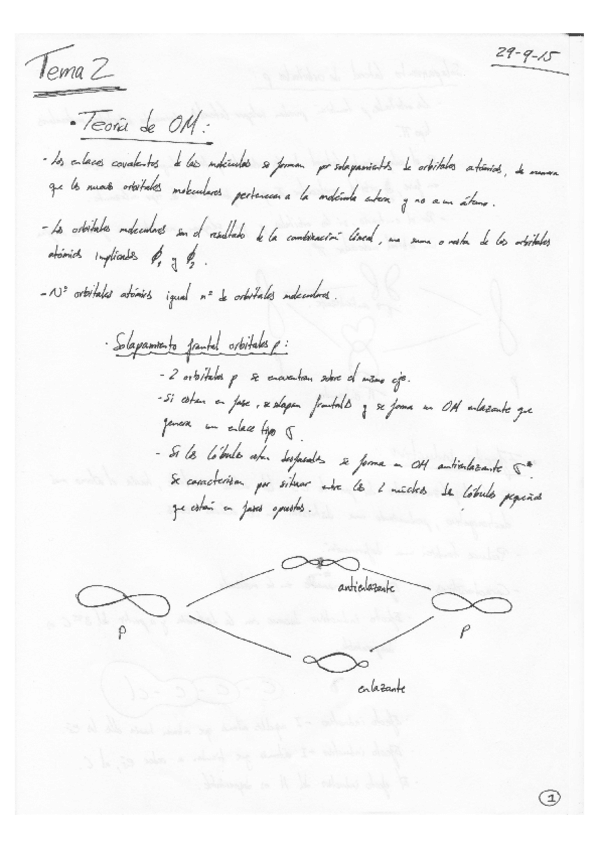 29-9-15
Tema 2
• Teoría de OM:
- Los enlaces covalentes de las moléculas se forman por solapamientos de orbitales atómicos, de manera
que los nuevos orbitales moleculares pertenecen a la molécula entera y no a un átomo.
- Los orbitales moleculares son el resultado de la combinación lineal, una suma o resta de los orbitales
atómicos implicados ϕ₁ y ϕ₂.
- Nº orbitales atómicos igual nº de orbitales moleculares.
· Solapamiento frontal orbitales p:
- 2 orbitales p se encuentran sobre el mismo eje.
- Si están en fase, se solapan frontales y se forma un OM enlazante que
genera un enlace tipo σ.
- Si los lóbulos están desfasados se forma un OM antienlazante σ*.
Se caracterizan por situar entre los 2 núcleos los lóbulos pequeños
que están en fases opuestas.
antienlazante
P
P
enlazante
1